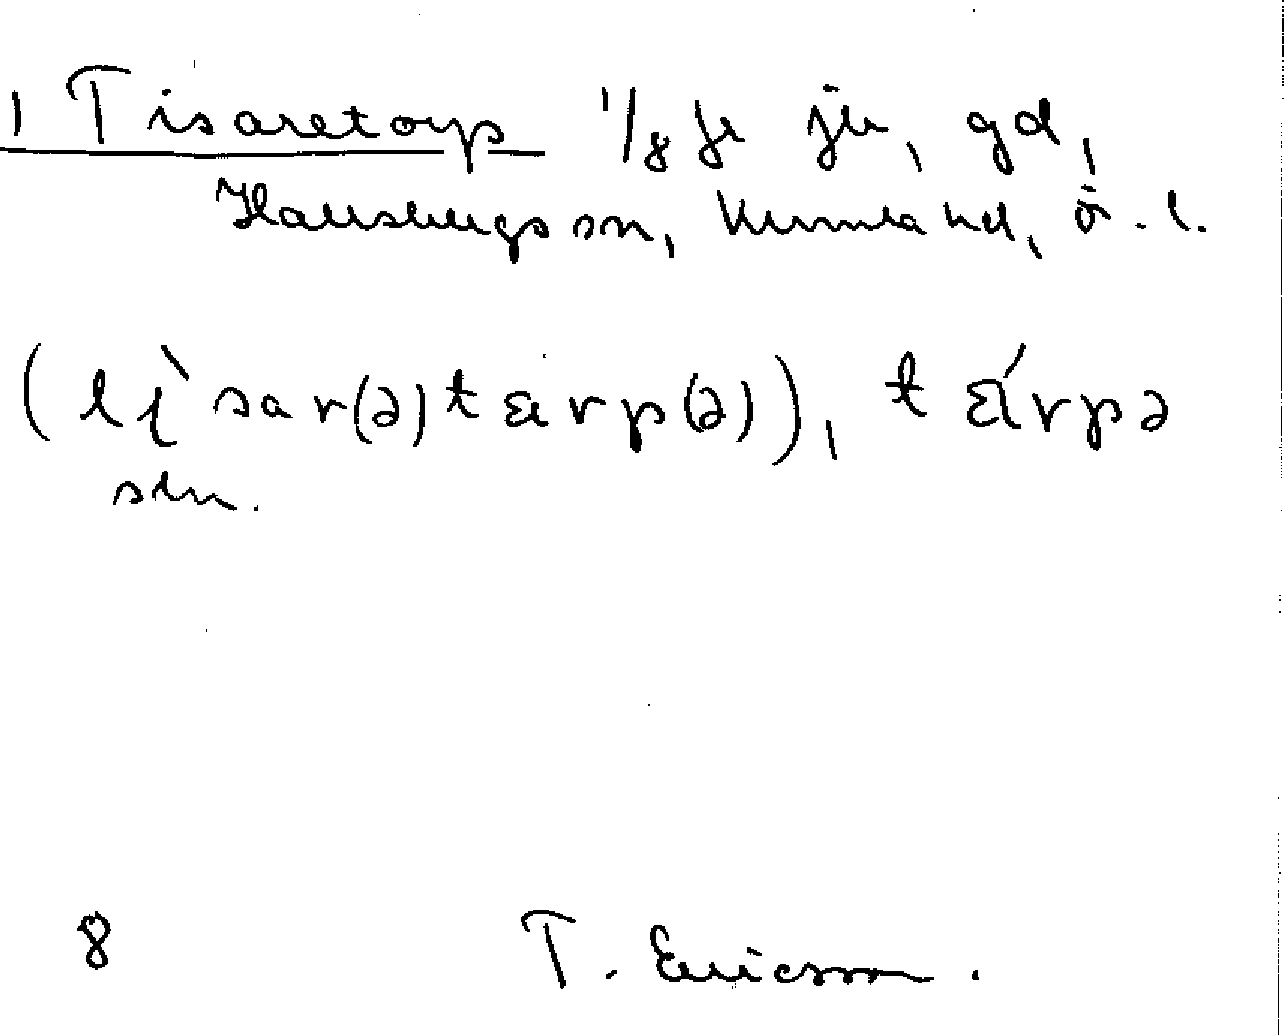 1 Tisaretorp 1/8 fr ju, gd,
Hallsbergs sn, Kumla hd, ö. l.
(tɩ̀sar(ə)tɛrp(ə)), tɛ́rpə
stn.
8 T. Ericsson.